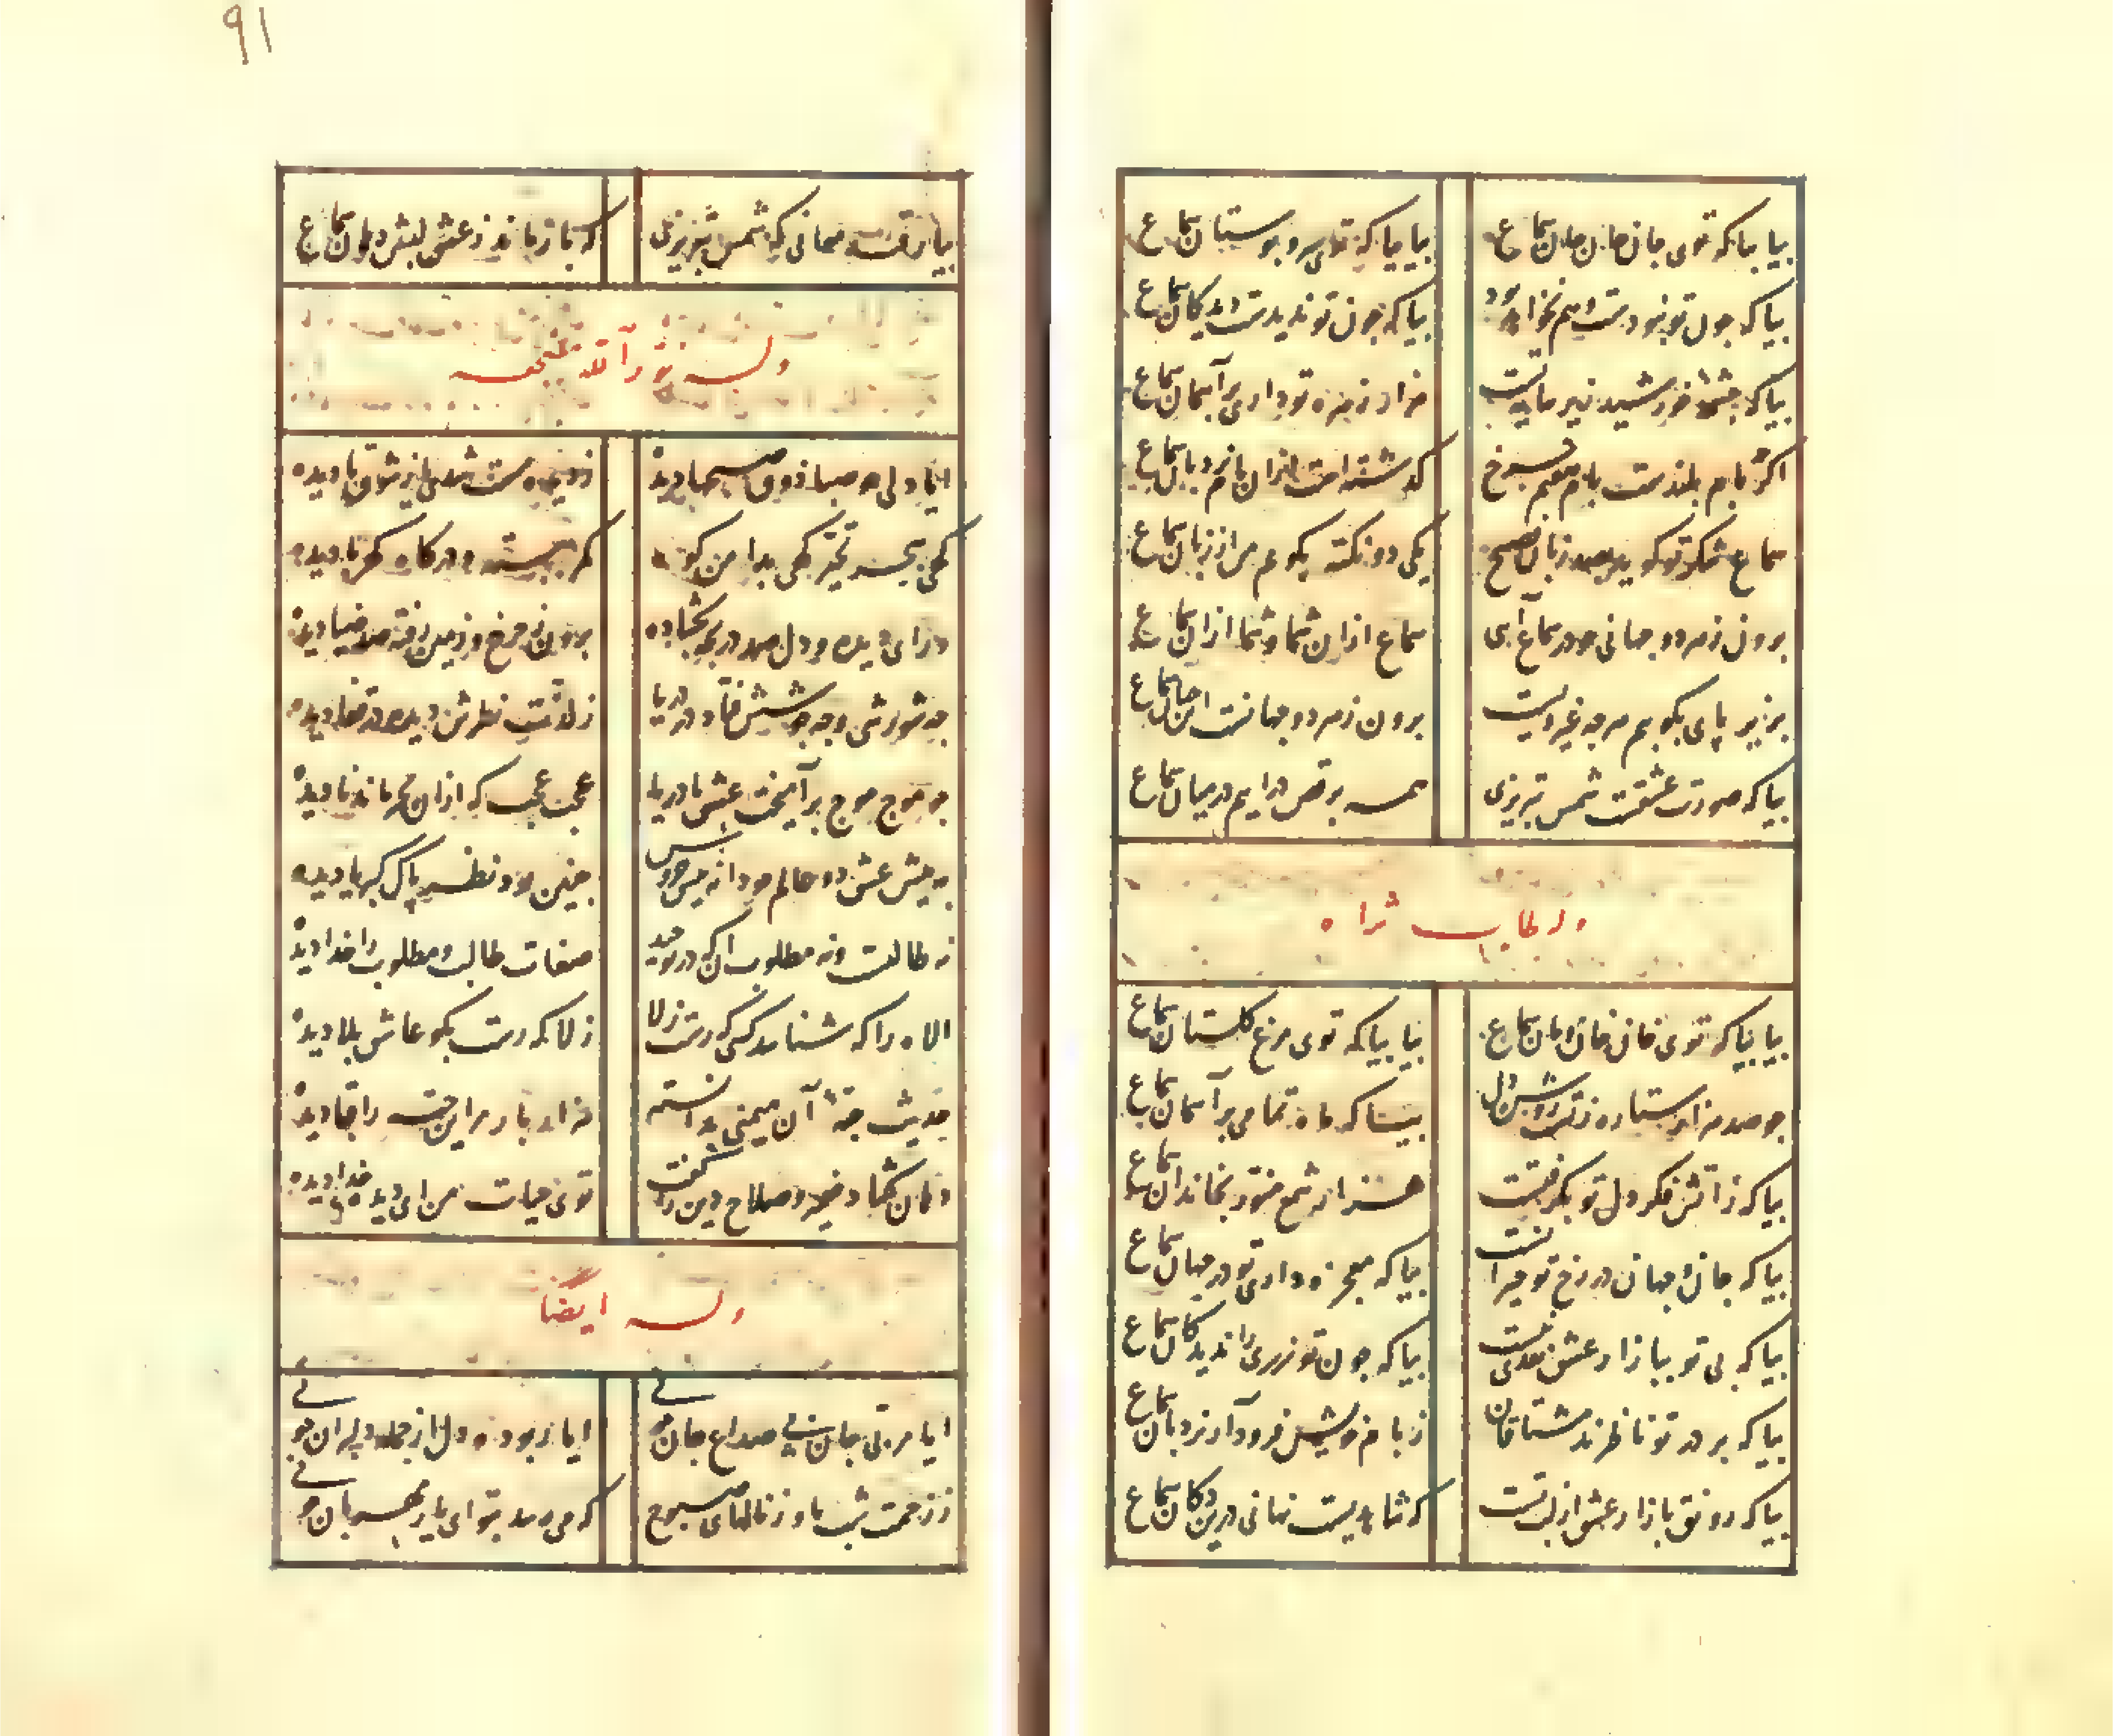 بیا بیا که توی جان جان جان سماع
بیا بیا که توی سرو بوستان سماع
بیا که جون تو نبودست و هم نخواهد بود
بیا که جون تو ندیدست دیدکان سماع
بیا که جشمهٔ خورشید زیر سایه تست
هزار زهره تو داری بر آسمان سماع
اکر بام بلندست بام هفتم جرخ
کذشته است ازان بام نردبان سماع
سماع شکر تو کوید بصد زبان فصیح
یکی دو نکته بکویم من از زبان سماع
برون ز هر دو جهانی جو در سماع آیی
سماع ازان شما و شما ازان سماع
بزیر پای بکوبیم هرجه غیر ویست
برون ز هر دو جهانست این جهان سماع
بیا که صورت عشقست شمس تبریزی
همه برقص درآییم در میان سماع
وله طاب ثراه
بیا بیا که توی جان جان جان سماع
بیا بیا که توی مرغ کلستان سماع
جو صد هزار ستاره ز تست روشن دل
بیا که ماه تمامی بر آسمان سماع
بیا که ز آتش فکر دل تو بکرفتست
هزار شمع منور بخاندان سماع
بیا که جان و جهان در رخ تو حیرانست
بیا که معجزه داری تو در جهان سماع
بیا که بی تو ببازار عشق نقدی نیست
بیا که جون تو زری را ندید کان سماع
بیا که بر در تو ناظرند مشتاقان
ز بام خویش فرود آر نردبان سماع
بیا که رونق بازار عشق از لب تست
که شاهدیست نهانی درین دکان سماع
۹۱
بیار قند معانی که شمس تبریزی
که باز ماند ز عشق لبش دهان سماع
وله نور الله مضجعه
ایا دلی جو صبا ذوق صبحها دیده
ز دیده مست شدی یا ز ذوق نادیده
کهی ببحر تحیر کهی بدامن کوه
کمر ببسته و در کاه کهربا دیده
ورای دیده و دل صد دریجه بکشاده
برون ز جرخ و زمین رفته صد ضیا دیده
جه شورشی و جه جوشش فتاد در دریا
ز لذت نظرش دیده در قفا دیده
جو موج موج برآمیخت عشق با دریا
عجب عجب که ازان بحر ماند نادیده
به پیش عشق دو عالم جو دانه پیش خروس
جنین بود نظر پاک کبریا دیده
نه طالبست و نه مطلوب آن که در توحید
صفات طالب و مطلوب را خدا دیده
اله را که شناسد کسی که رست ز لا
ز لا که رست بکو عاشق بلا دیده
حدیث جبهٔ آن میهنی بدانسته
هزار بار مر این جبه را قبا دیده
دهان کشاد ضمیر و صلاح دین را کفت
توی حیات من ای دیدهٔ خدا دیده
وله ایضا
ایا مربی جان بی صداع جان جونی
ایا ربوده دل از جمله دلبران جونی
ز زحمت شب ما و ز نالهای صبوح
که می رسد بتو ای یار مهربان جونی